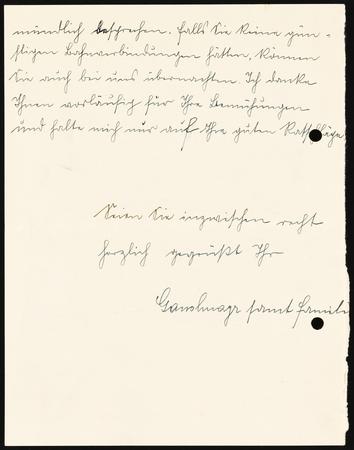 mündlich besprechen. Falls Sie keine gün-
stigen Bahnverbindungen hätten, können
Sie auch bei uns übernachten. Ich danke
Ihnen vorläufig für Ihre Bemühungen
und halte mich nur auf Ihre guten Ratschläge
Seien Sie inzwischen recht
herzlich gegrüßt Ihr
samt Famili